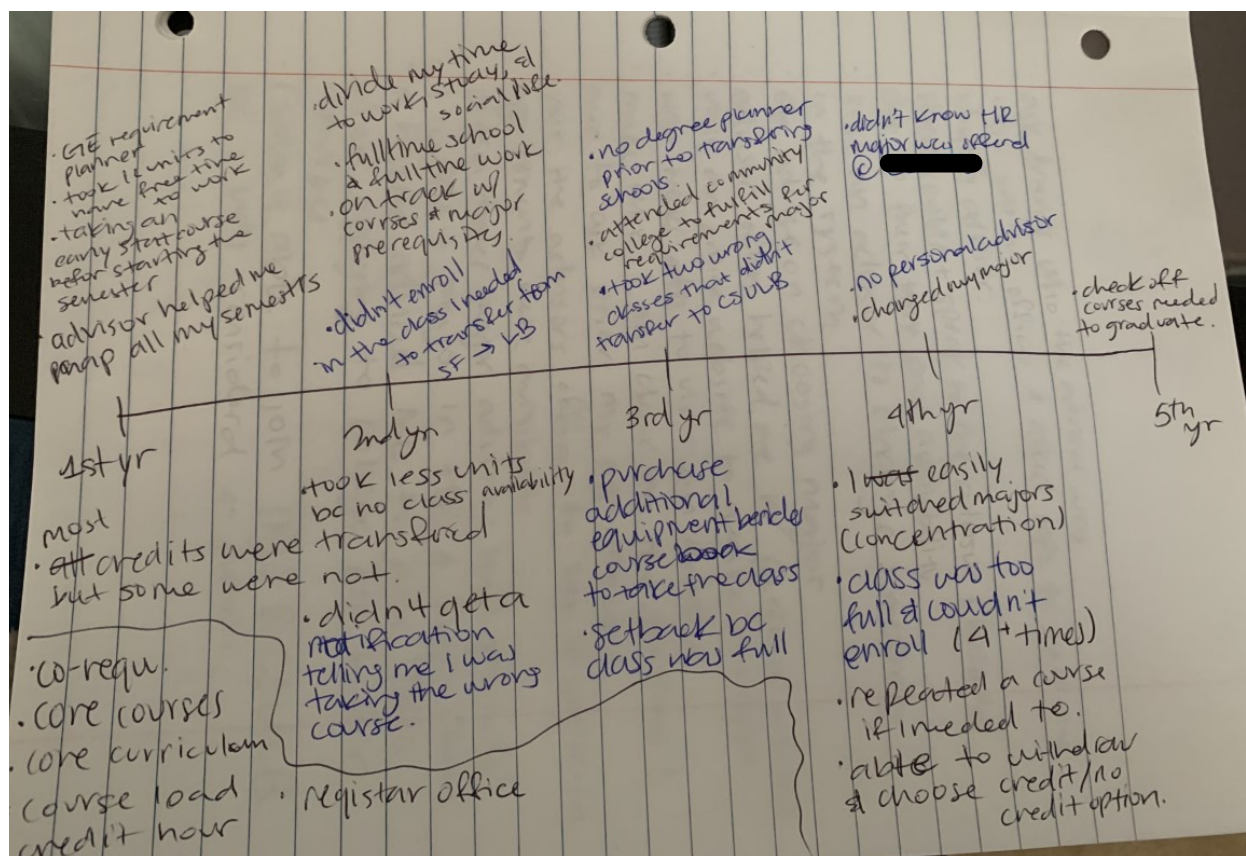 · GE requirement
planner
· took 12 units to
have free time
to work
· taking an
early start course
befor starting the
semester
· advisor helped me
map all my semestrs
· divide my time
to work, study, &
social life.
· fulltime school
& fulltime work
· on track w/
courses & major
prerequisites.
· didn't enroll
in the class I needed
to transfer from
SF → LB
· no degree planner
prior to transfering
schools
· attended community
college to fulfill
requirements for
major
· took two wrong
classes that didn't
transfer to CSULB
· didn't know HR
major was offered
@
· no personal advisor
· changed my major
· check off
courses needed
to graduate.
1st yr
2nd yr
3rd yr
4th yr
5th
yr
most
· all credits were transfered
but some were not.
· took less units
bc no class availability
· didn't get a
notification
telling me I was
taking the wrong
course.
· purchase
additional
equipment besides
course book
to take the class
· setback bc
class was full
· I was easily
switched majors
(concentration)
· class was too
full & couldn't
enroll (4+ times)
· repeated a course
if I needed to.
· able to withdraw
& choose credit/no
credit option.
· co-requ.
· core courses
· core curriculum
· course load
credit hour
· registar office